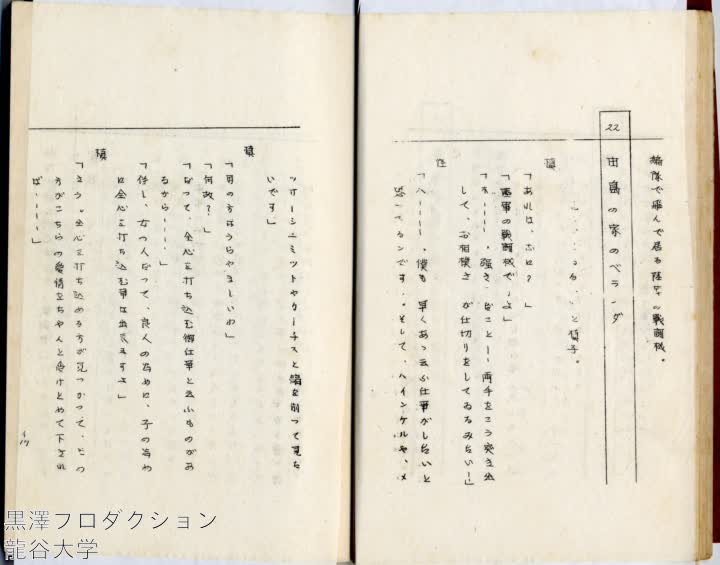 編隊で飛んで居る陸軍の戦闘機。
22
由島の家のベランダ
る
と
子。
槙
「あれは、
「陸軍の戦闘機で
よ」
「まーーー、強さ
ことー、両手をこう突き出
して、お相撲さ
が仕切りをしてゐるみたい!」
「ハーーー。僕も
早くあゝ云ふ仕事がしたいと
思ってるンです
。そして、ハインケルや、メ
ッサーシュミットやカーチスと鎬を削って見た
いです」
槙
「男の方はうらやましいわ」
「何故?」
「だって、全心を打ち込む御仕事と云ふものがあ
るから・・・」
「併し、女の人だって、良人の為めに、子の為め
に全心を打ち込む事は出来ますよ」
槙
「えゝ。全心を打ち込める方が見つかって、その
方がこちらの愛情をちゃんと受けとめて下され
ば・・・・」
黒澤プロダクション
龍谷大学